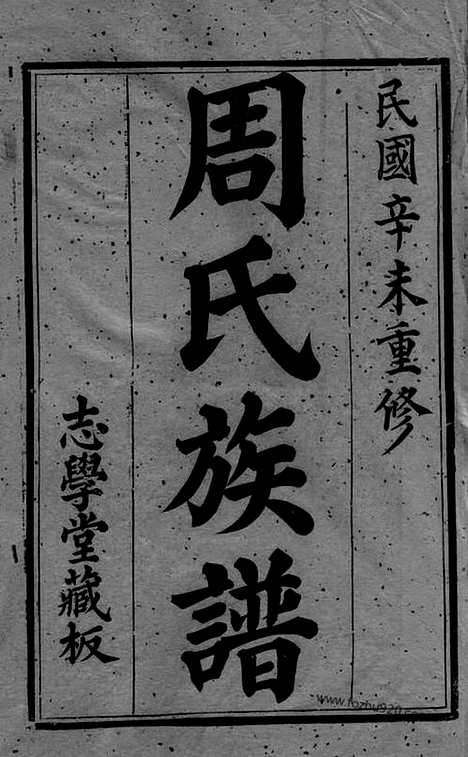 民國辛未重修
周氏族譜
志學堂藏板